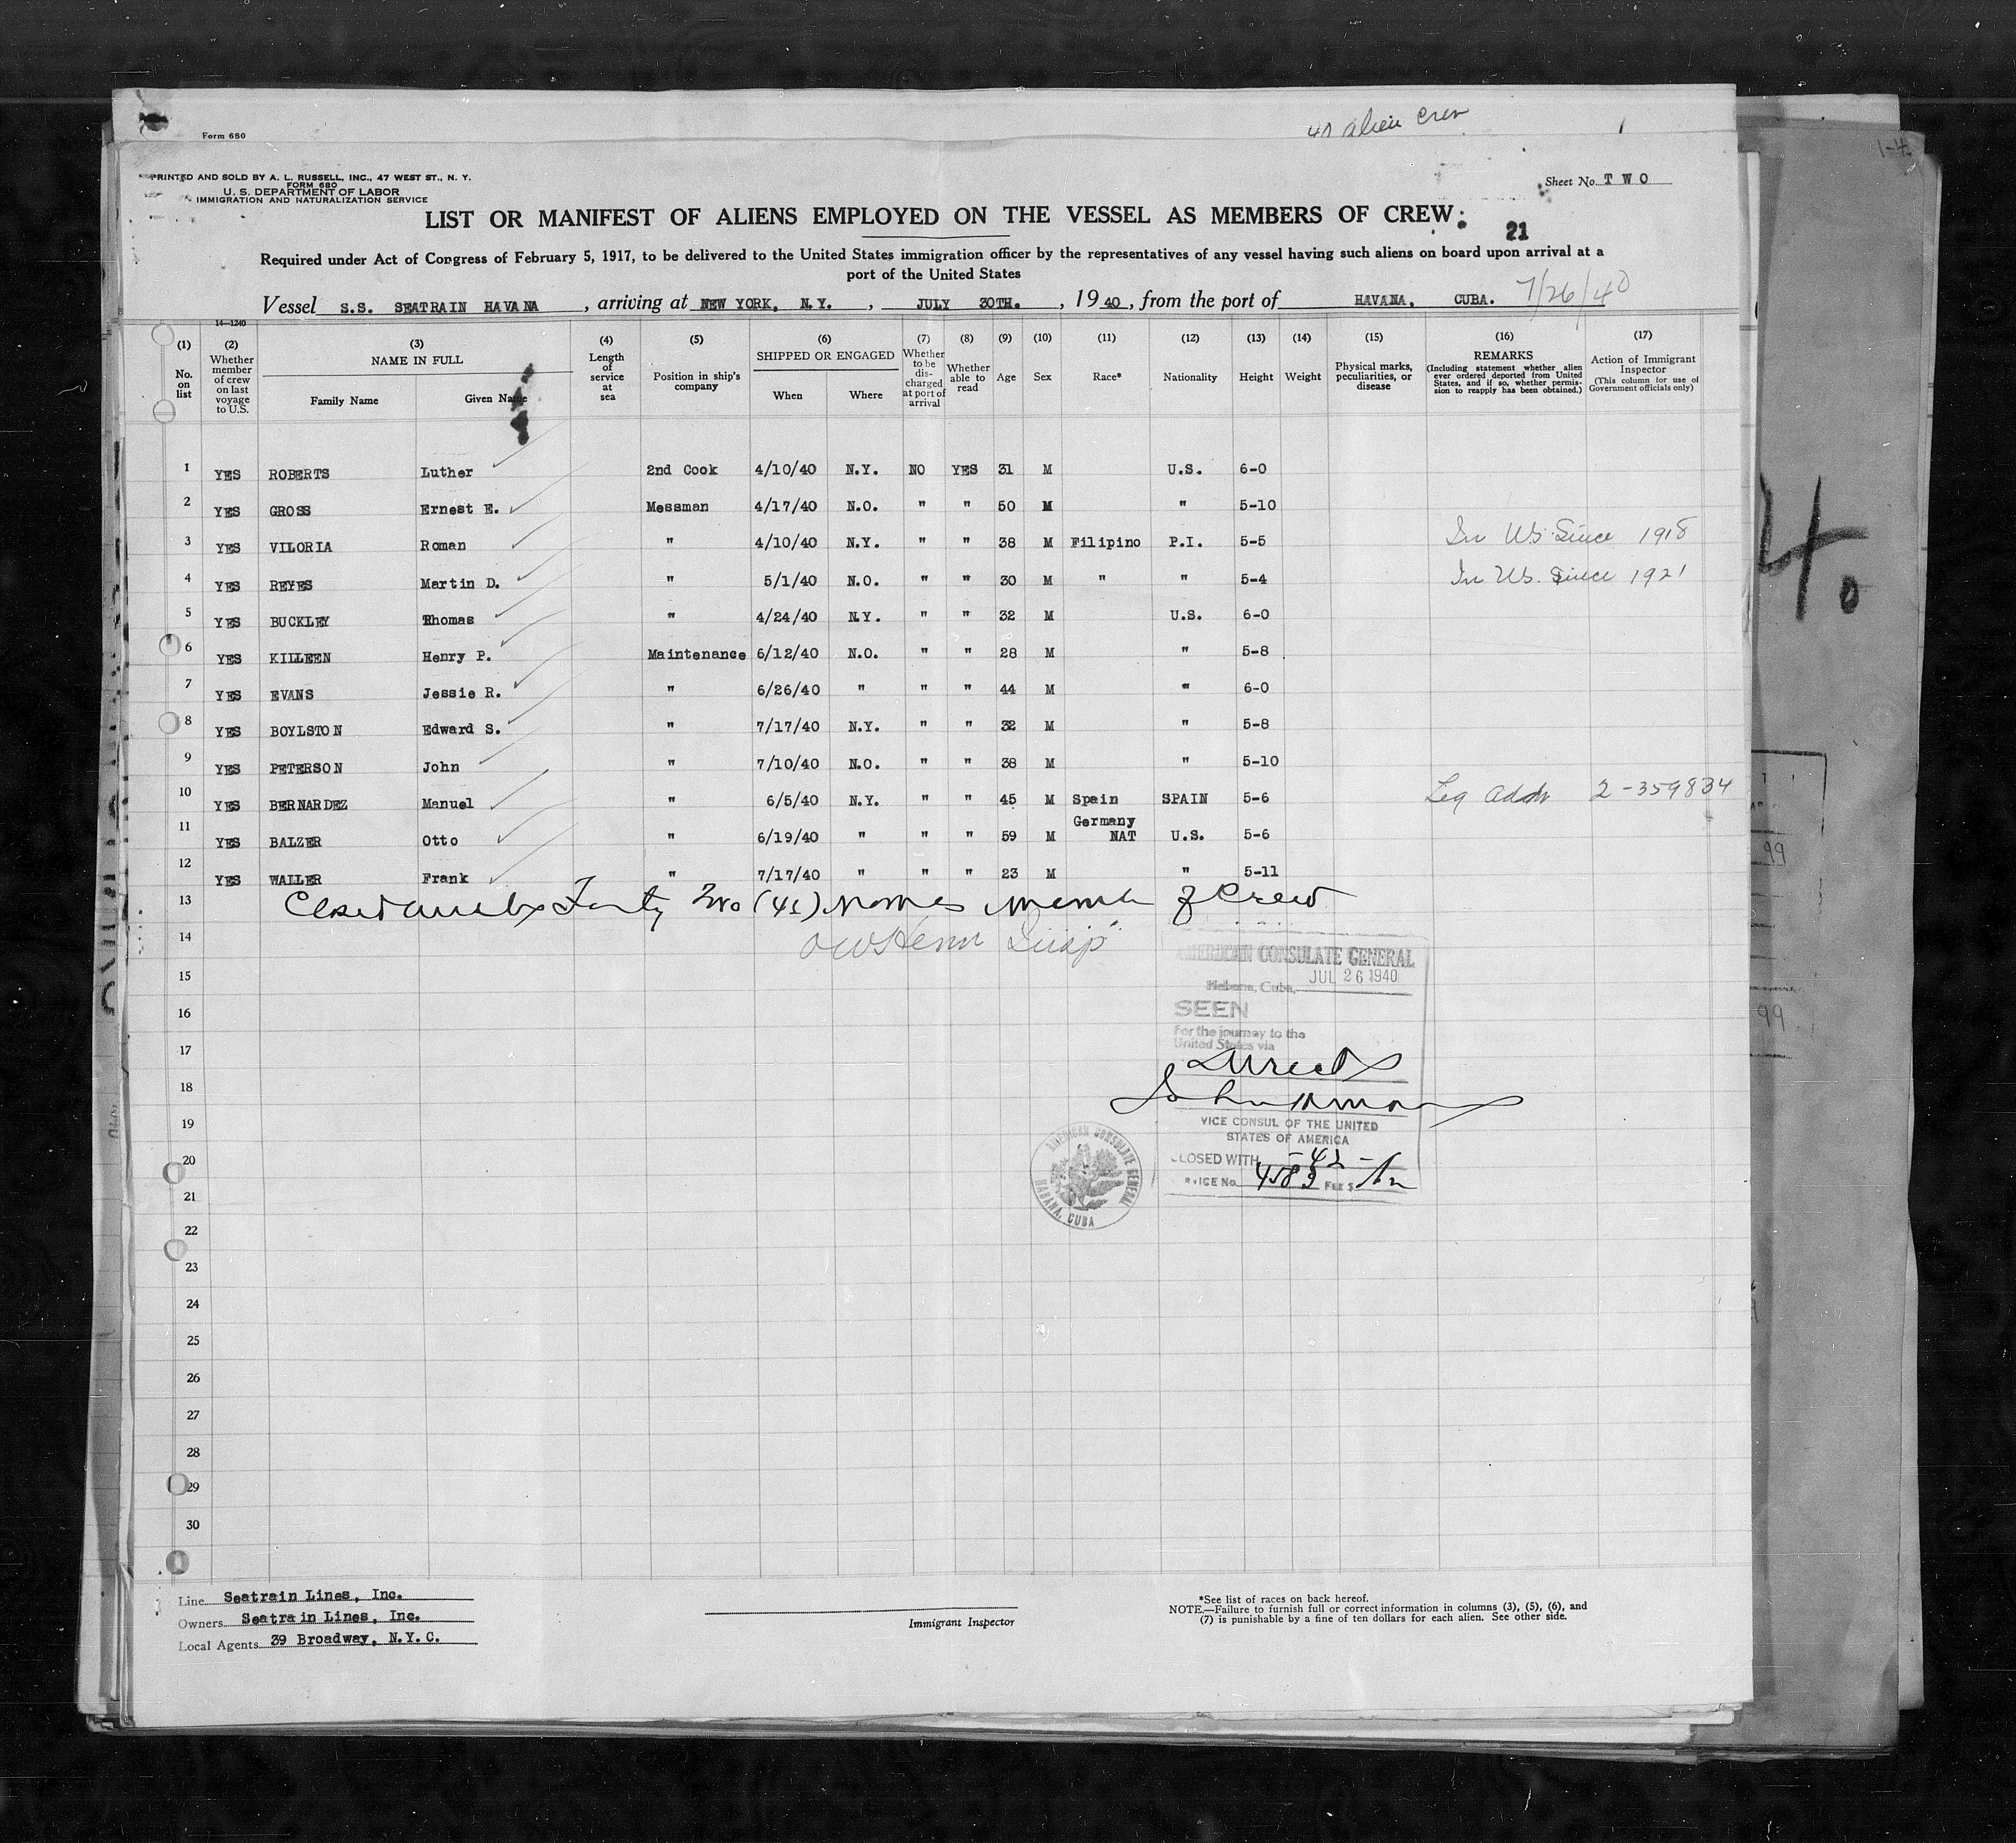 Form 680
alien crew
PRINTED AND SOLD BY A. L. RUSSELL, INC., 47 WEST ST., N. Y.
FORM 680
U. S. DEPARTMENT OF LABOR
IMMIGRATION AND NATURALIZATION SERVICE
Sheet No. TWO
LIST OR MANIFEST OF ALIENS EMPLOYED ON THE VESSEL AS MEMBERS OF CREW
21
Required under Act of Congress of February 5, 1917, to be delivered to the United States immigration officer by the representatives of any vessel having such aliens on board upon arrival at a
port of the United States
Vessel S.S. SEATRAIN HAVANA, arriving at NEW YORK, N.Y., JULY 30TH., 1940, from the port of HAVANA, CUBA. 7/26/40
14-1240
(1) No. on list
(2) Whether member of crew on last voyage to U.S.
(3) NAME IN FULL Family Name Given Name
(4) Length of service at sea
(5) Position in ship's company
(6) SHIPPED OR ENGAGED When Where
(7) Whether to be discharged at port of arrival
(8) Whether able to read
(9) Age
(10) Sex
(11) Race*
(12) Nationality
(13) Height
(14) Weight
(15) Physical marks, peculiarities, or disease
(16) REMARKS (Including statement whether alien ever ordered deported from United States, and if so, whether permission to reapply has been obtained.)
(17) Action of Immigrant Inspector (This column for use of Government officials only)
1 YES ROBERTS Luther 2nd Cook 4/10/40 N.Y. NO YES 31 M U.S. 6-0
2 YES GROSS Ernest E. Messman 4/17/40 N.O. " " 50 M " 5-10
3 YES VILORIA Roman " 4/10/40 N.Y. " " 38 M Filipino P.I. 5-5 In US Since 1918
4 YES REYES Martin D. " 5/1/40 N.O. " " 30 M " " 5-4 In US. Since 1921
5 YES BUCKLEY Thomas " 4/24/40 N.Y. " " 32 M U.S. 6-0
6 YES KILLEEN Henry P. Maintenance 6/12/40 N.O. " " 28 M " 5-8
7 YES EVANS Jessie R. " 6/26/40 " " " 44 M " 6-0
8 YES BOYLSTON Edward S. " 7/17/40 N.Y. " " 32 M " 5-8
9 YES PETERSON John " 7/10/40 N.O. " " 38 M " 5-10
10 YES BERNARDEZ Manuel " 6/5/40 N.Y. " " 45 M Spain SPAIN 5-6 Leg Adm 2-359834
11 YES BALZER Otto " 6/19/40 " " " 59 M Germany NAT U.S. 5-6
12 YES WAILER Frank " 7/17/40 " " " 23 M " 5-11
13 Forty Two (42) Names of Crew
14
AMERICAN CONSULATE GENERAL
15
JUL 26 1940
Habana, Cuba.
16
SEEN
For the journey to the
United States via
17
Direct
18
19
VICE CONSUL OF THE UNITED
STATES OF AMERICA
20
CLOSED WITH -42-
21
SERVICE No. 4583 FEE $
AMERICAN CONSULATE GENERAL HABANA, CUBA
22
23
24
25
26
27
28
29
30
Line Seatrain Lines, Inc.
Owners Seatrain Lines, Inc.
Local Agents 39 Broadway, N.Y.C.
Immigrant Inspector
*See list of races on back hereof.
NOTE.—Failure to furnish full or correct information in columns (3), (5), (6), and
(7) is punishable by a fine of ten dollars for each alien. See other side.